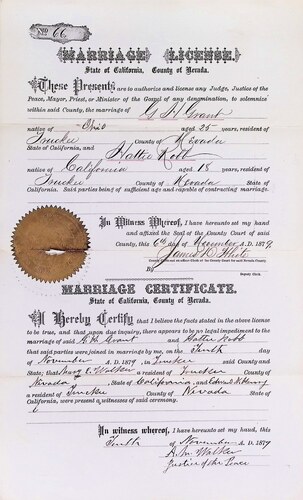 No. 66
MARRIAGE LICENSE.
State of California, County of Nevada.
These Presents are to authorize and license any Judge, Justice of the
Peace, Mayor, Priest, or Minister of the Gospel of any denomination, to solemnize
within said County, the marriage of G H Grant
native of Ohio aged 25 years, resident of
Truckee County of Nevada
State of California, and Hattie Robb
native of California aged 18 years, resident of
Truckee County of Nevada State of
California. Said parties being of sufficient age and capable of contracting marriage.
In Witness Whereof, I have hereunto set my hand
and affixed the Seal of the County Court of said
County, this 6th day of November A.D. 1879
James D White
By
Deputy Clerk.
MARRIAGE CERTIFICATE.
State of California, County of Nevada.
I Hereby Certify that I believe the facts stated in the above license
to be true, and that upon due inquiry, there appears to be no legal impediment to the
marriage of said G H Grant and Hattie Robb
that said parties were joined in marriage by me, on the Tenth day
of November A. D. 1879, in Truckee said County and
State; that Mary E Walker a resident of Truckee
Nevada, State of California, and Edward
a resident of Truckee County of Nevada State of
California, were present as witnesses of said ceremony.
In witness whereof, I have hereunto set my hand this
Tenth of November A.D. 1879
Walker
Justice of the Peace